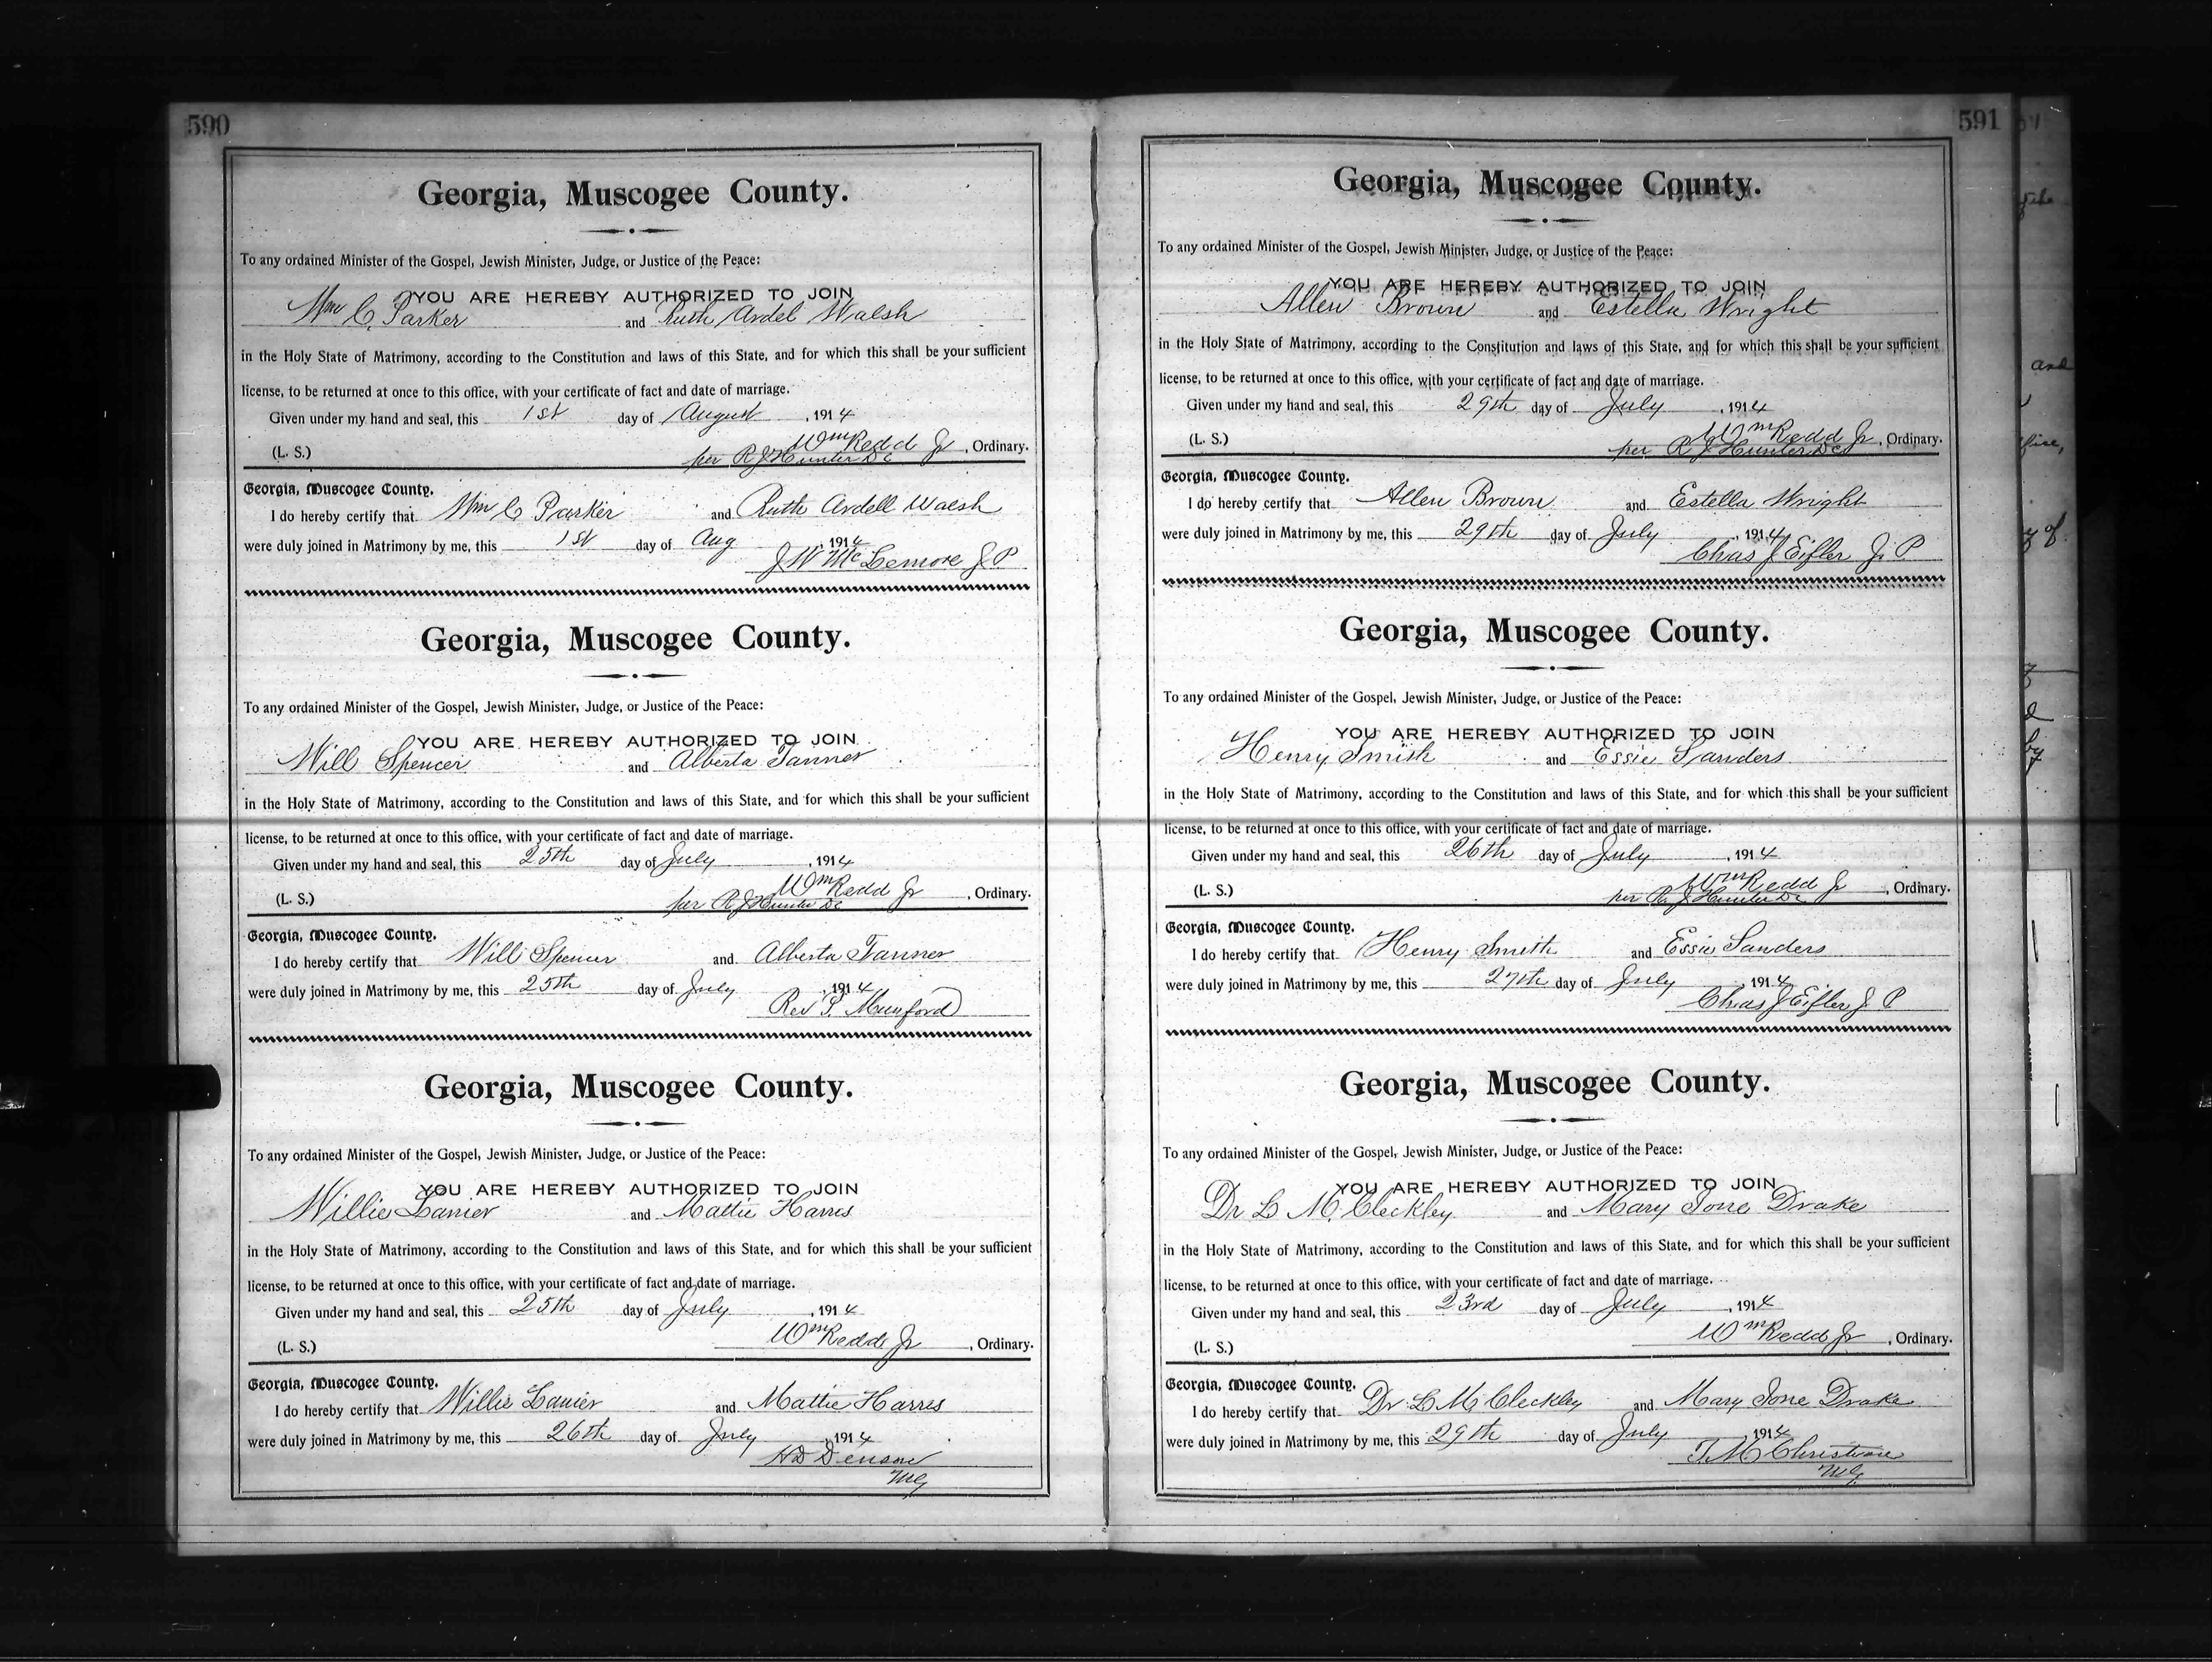 590
Georgia, Muscogee County.
To any ordained Minister of the Gospel, Jewish Minister, Judge, or Justice of the Peace:
YOU ARE HEREBY AUTHORIZED TO JOIN
Wm C. Parker and Ruth Ardel Walsh
in the Holy State of Matrimony, according to the Constitution and laws of this State, and for which this shall be your sufficient
license, to be returned at once to this office, with your certificate of fact and date of marriage.
Given under my hand and seal, this 1st day of August, 1914
(L. S.) Wm Redd Jr, Ordinary.
per R J Hunter DC
Georgia, Muscogee County.
I do hereby certify that Wm C Parker and Ruth Ardell Walsh
were duly joined in Matrimony by me, this 1st day of Aug, 1914
J W McLemore J. P.
Georgia, Muscogee County.
To any ordained Minister of the Gospel, Jewish Minister, Judge, or Justice of the Peace:
YOU ARE HEREBY AUTHORIZED TO JOIN
Will Spencer and Alberta Tanner
in the Holy State of Matrimony, according to the Constitution and laws of this State, and for which this shall be your sufficient
license, to be returned at once to this office, with your certificate of fact and date of marriage.
Given under my hand and seal, this 25th day of July, 1914
(L. S.) Wm Redd Jr, Ordinary.
per R J Hunter DC
Georgia, Muscogee County.
I do hereby certify that Will Spencer and Alberta Tanner
were duly joined in Matrimony by me, this 25th day of July, 1914
Rev P. Munford
Georgia, Muscogee County.
To any ordained Minister of the Gospel, Jewish Minister, Judge, or Justice of the Peace:
YOU ARE HEREBY AUTHORIZED TO JOIN
Willie Lanier and Mattie Harris
in the Holy State of Matrimony, according to the Constitution and laws of this State, and for which this shall be your sufficient
license, to be returned at once to this office, with your certificate of fact and date of marriage.
Given under my hand and seal, this 25th day of July, 1914
(L. S.) Wm Redd Jr, Ordinary.
Georgia, Muscogee County.
I do hereby certify that Willie Lanier and Mattie Harris
were duly joined in Matrimony by me, this 26th day of July, 1914
H D Denson
MG
591
Georgia, Muscogee County.
To any ordained Minister of the Gospel, Jewish Minister, Judge, or Justice of the Peace:
YOU ARE HEREBY AUTHORIZED TO JOIN
Allen Brown and Estella Wright
in the Holy State of Matrimony, according to the Constitution and laws of this State, and for which this shall be your sufficient
license, to be returned at once to this office, with your certificate of fact and date of marriage.
Given under my hand and seal, this 29th day of July, 1914
(L. S.) Wm Redd Jr, Ordinary.
per R J Hunter DC
Georgia, Muscogee County.
I do hereby certify that Allen Brown and Estella Wright
were duly joined in Matrimony by me, this 29th day of July, 1914
Chas J Eifler J. P
Georgia, Muscogee County.
To any ordained Minister of the Gospel, Jewish Minister, Judge, or Justice of the Peace:
YOU ARE HEREBY AUTHORIZED TO JOIN
Henry Smith and Essie Sanders
in the Holy State of Matrimony, according to the Constitution and laws of this State, and for which this shall be your sufficient
license, to be returned at once to this office, with your certificate of fact and date of marriage.
Given under my hand and seal, this 26th day of July, 1914
(L. S.) Wm Redd Jr, Ordinary.
per R J Hunter DC
Georgia, Muscogee County.
I do hereby certify that Henry Smith and Essie Sanders
were duly joined in Matrimony by me, this 27th day of July, 1914
Chas J Eifler J. P
Georgia, Muscogee County.
To any ordained Minister of the Gospel, Jewish Minister, Judge, or Justice of the Peace:
YOU ARE HEREBY AUTHORIZED TO JOIN
Dr L M. Cleckley and Mary Ione Drake
in the Holy State of Matrimony, according to the Constitution and laws of this State, and for which this shall be your sufficient
license, to be returned at once to this office, with your certificate of fact and date of marriage.
Given under my hand and seal, this 23rd day of July, 1914
(L. S.) Wm Redd Jr, Ordinary.
Georgia, Muscogee County.
I do hereby certify that Dr. L M Cleckley and Mary Ione Drake
were duly joined in Matrimony by me, this 29th day of July, 1914
T. M Christian
MG.
and
y of
by